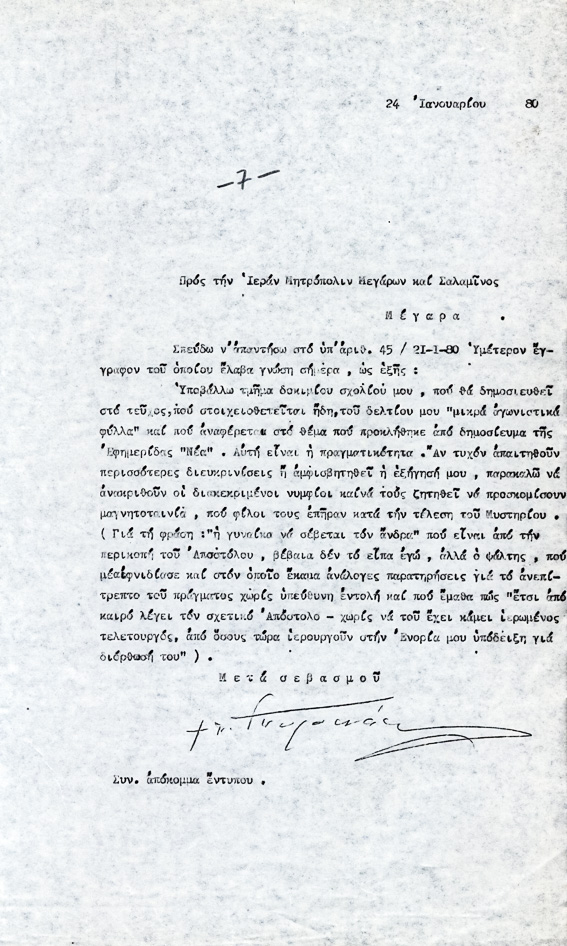 24 Ἰανουαρίου 80
-7-
Πρός τήν Ἱεράν Μητρόπολιν Μεγάρων καί Σαλαμῖνος
Μέγαρα .
Σπεύδω ν'ἀπαντήσω στό ὑπ'ἀριθ. 45 / 21-1-80 Ὑμέτερον ἔγ-
γραφον τοῦ ὁποίου ἔλαβα γνώση σήμερα , ὡς ἑξῆς :
Ὑποβάλλω τμῆμα δοκιμίου σχολίου μου , πού θά δημοσιευθεῖ
στό τεῦχος,πού στοιχειοθετεῖται ἤδη,τοῦ δελτίου μου "μικρά ἀγωνιστικά
φύλλα" καί πού ἀναφέρεται στό θέμα πού προκλήθηκε ἀπό δημοσίευμα τῆς
Ἐφημερίδας "Νέα" . Αὐτή εἶναι ἡ πραγματικότητα . Ἄν τυχόν ἀπαιτηθοῦν
περισσότερες διευκρινίσεις ἤ ἀμφισβητηθεῖ ἡ ἐξήγησή μου , παρακαλῶ νά
ἀνακριθοῦν οἱ διακεκριμένοι νυμφίοι καίνά τούς ζητηθεῖ νά προσκομίσουν
μαγνητοταινία , πού φίλοι τους ἐπῆραν κατά τήν τέλεση τοῦ Μυστηρίου .
( Γιά τή φράση :"ἡ γυναίκα νά σέβεται τόν ἄνδρα" πού εἶναι ἀπό τήν
περικοπή τοῦ Ἀποστόλου , βέβαια δέν τό εἶπα ἐγώ , ἀλλά ὁ ψάλτης , πού
μέαἰφνιδίασε καί στόν ὁποῖο ἔκαμα ἀνάλογες παρατηρήσεις γιά τό ἀνεπί-
τρεπτο τοῦ πράγματος χωρίς ὑπεύθυνη ἐντολή καί πού ἔμαθα πώς "ἔτσι ἀπό
καιρό λέγει τόν σχετικό Ἀπόστολο – χωρίς νά τοῦ ἔχει κάμει ἱερωμένος
τελετουργός, ἀπό ὅσους τώρα ἱερουργοῦν στήν Ἐνορία μου ὑπόδειξη γιά
διόρθωσή του" ) .
Μετά σεβασμοῦ
Συν. ἀπόκομμα ἔντυπου .